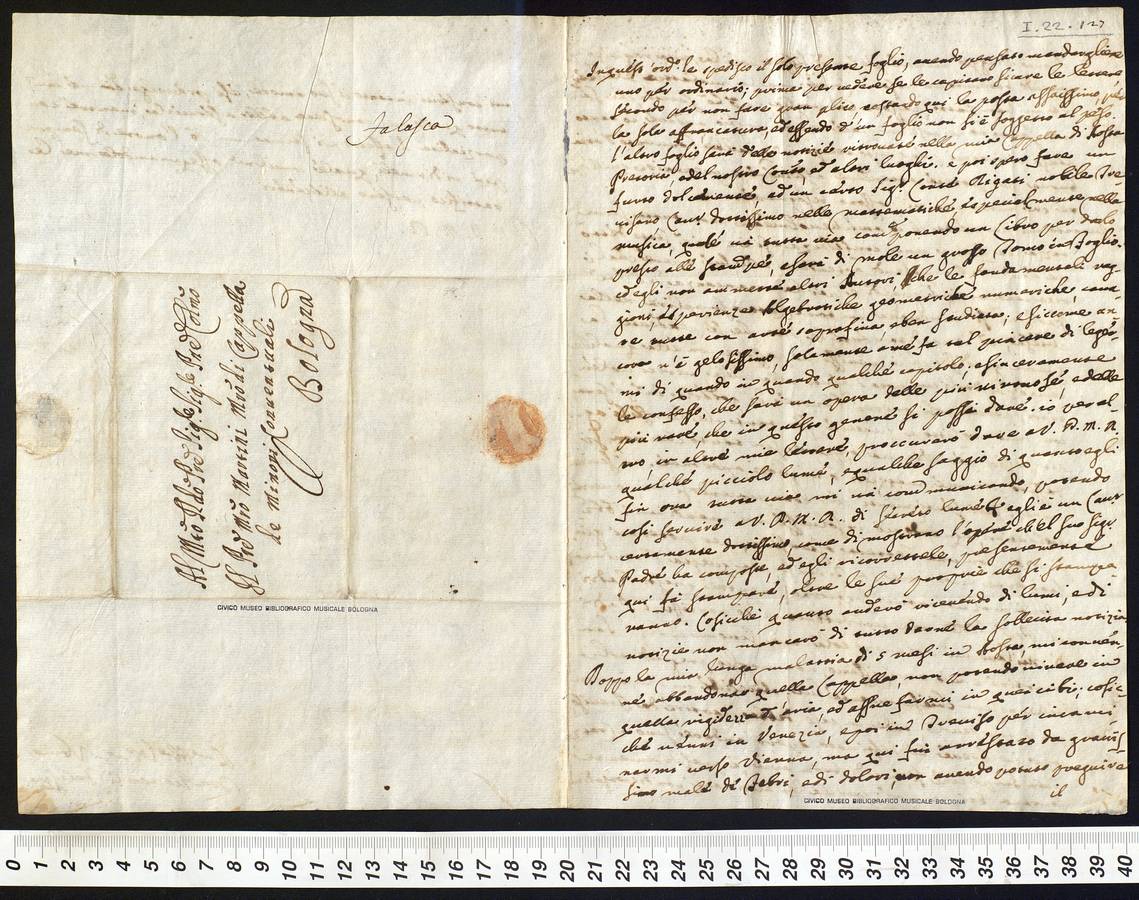 Falasca
Al M.to R.do Pre Sig.re Sig.re Pre Colmo
Il Pre Mro Martini Mro di Cappella
de Minori Conventuali
Bologna
CIVICO MUSEO BIBLIOGRAFICO MUSICALE BOLOGNA
I.22.127
In questo ord.o le spedisco il solo presente foglio, avendo pensato mandargliene
uno per ordinario; prima per vedere se le capitano sicure le lettere
secondo per non fare gran plico, costando qui la posta assaissimo per
la sola affrancatura, ed essendo d'un foglio non si è soggetto al peso.
l'altro foglio sarà delle notizie ritrovate nella mia Cappella di
e del nostro ed altri luoghi. e poi spero fare un
furto ad un certo Sig.r Conte Rigati nobile Tre=
visano Cav.r dottissimo nelle mattematiche, especialmente nella
musica, quale và tutta via componendo un libro per darlo
presto alle stampe, e sarà di mole un grosso Tomo in foglio.
ed egli non ammette altri Autori, che le fondamentali rag=
gioni, esperienze Algebratiche geometriche numeriche, cava
te tutte con arte soprafina, e ben studiata; e siccome an=
cora n'è gelosissimo, solamente a me fa tal piacere di legger=
mi di quando in quando qualche capitolo, e sinceramente
le confesso, che sarà un opera delle più rinomate, e delle
più rare, che in questo genere si possa dare. io per al=
tro, in altre mie lettere, proccurerò dare a V. P. M. R.
qualche piccolo lume, e qualche saggio di quanto egli
fin ora tutta via mi và communicando, potendo
così servire a V. P. M. R. di secreto lume. egli è un Cav.r
certamente dottissimo, come di mostrano l'opere che'l suo Sig.r
Padre ha composte, ed egli ricorrette, presentemente
qui fà stampare, oltre le sue proprie che si stampe
ranno. Cosicchè quanto anderò ricevendo di lumi, e di
notizie non mancarò di tutto darne la sollecita notizia
Doppo la mia lunga malattia di 5 mesi in mi conven=
ne abbandonar quella Cappella, non potendo vivere in
quella rigidezza d'aria, ed assuefarmi in quei cibi; cosic=
chè venni in Venezia, e poi in Treviso per incami
narmi verso Vienna, ma qui fui arrestato da gravis=
simo male di febri, e di dolori, non avendo potuto proseguire
il
CIVICO MUSEO BIBLIOGRAFICO MUSICALE BOLOGNA
0 1 2 3 4 5 6 7 8 9 10 11 12 13 14 15 16 17 18 19 20 21 22 23 24 25 26 27 28 29 30 31 32 33 34 35 36 37 38 39 40